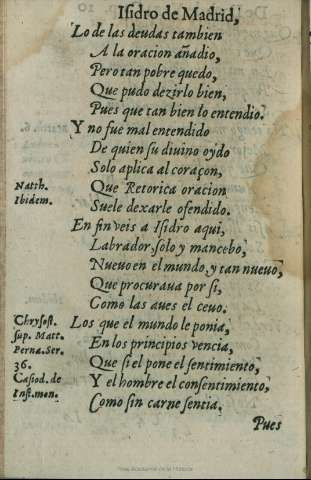 Isidro de Madrid,
Lo de las deudas tambien
A la oracion añadio,
Pero tan pobre quedo,
Que pudo dezirlo bien,
Pues que tan bien lo entendio.
Y no fue mal entendido
De quien su diuino oydo
Solo aplica al coraçon,
Natth.
Ibidem.
Que Retorica oracion
Suele dexarle ofendido.
En fin veis a Isidro aqui,
Labrador, solo y mancebo,
Nueuo en el mundo, y tan nueuo,
Que procuraua por si,
Como las aues el ceuo.
Chrysost.
sup. Matt.
Perna. Ser.
36.
Casiod. de
Inst. mon.
Los que el mundo le ponia,
En los principios vencia,
Que si el pone el sentimiento,
Y el hombre el consentimiento,
Como sin carne sentia.
Pues
Real Academia de la Historia